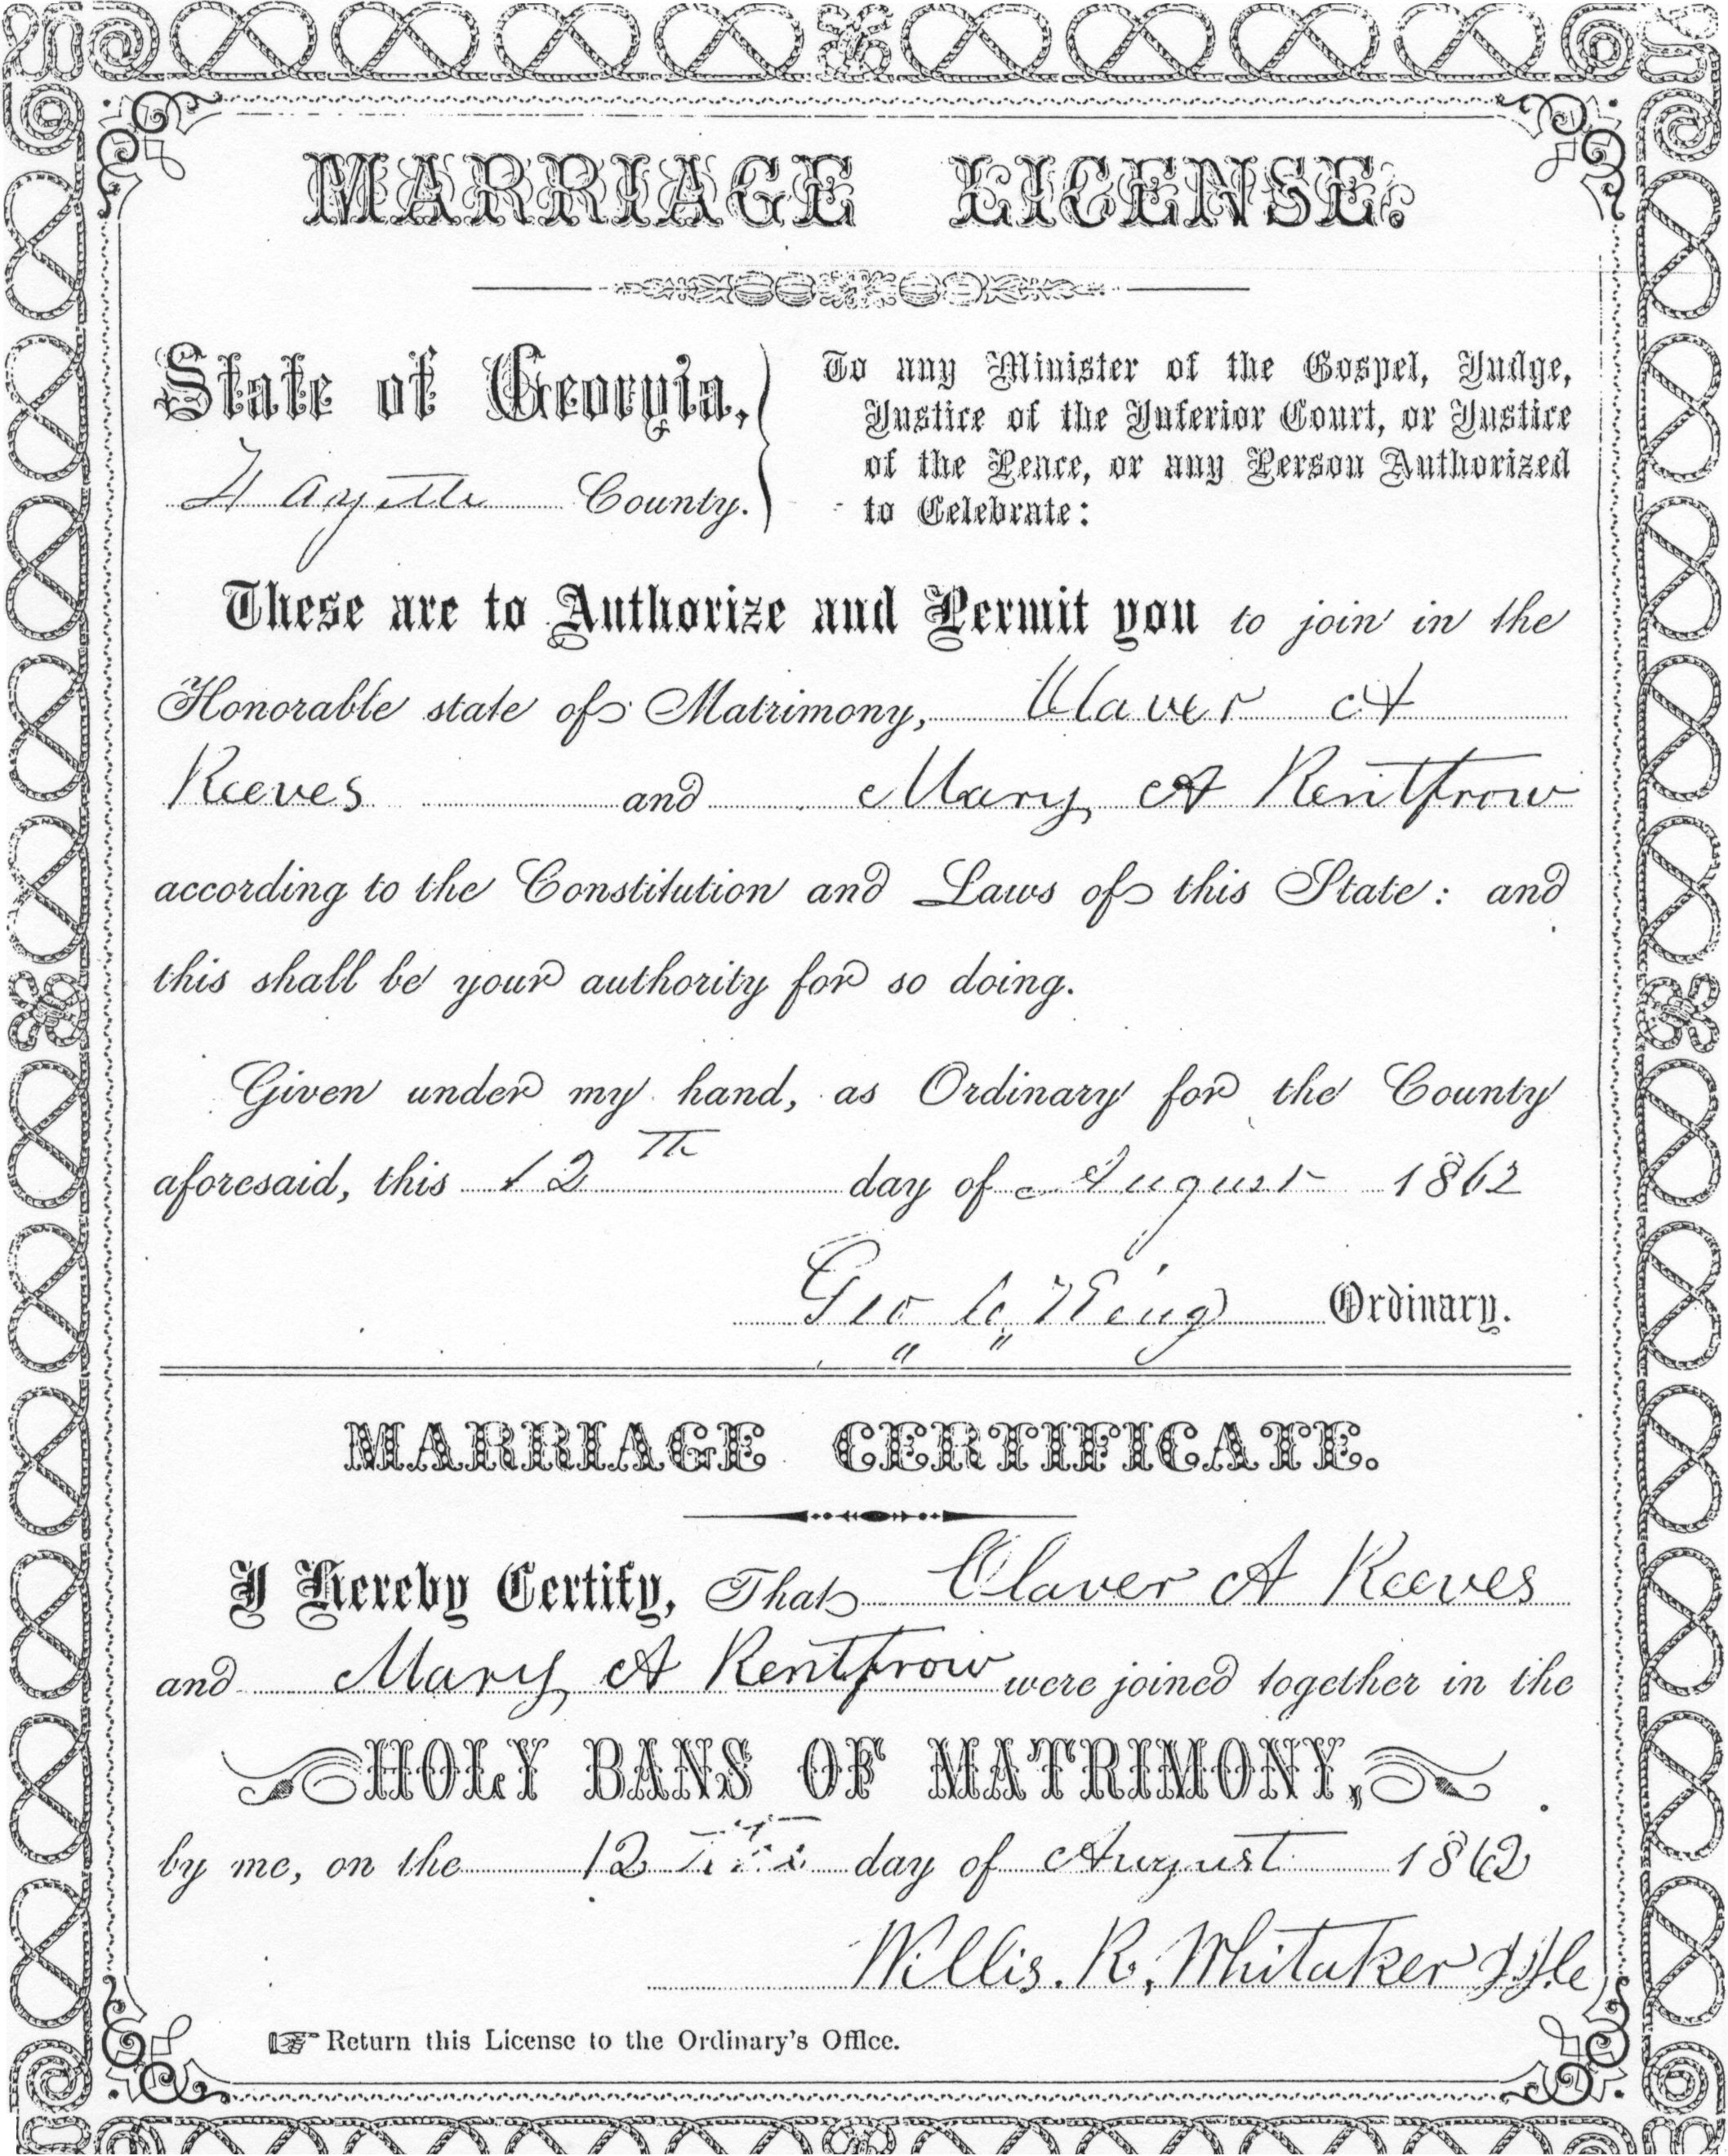 MARRIAGE LICENSE.
State of Georgia,
Fayette County.
To any Minister of the Gospel, Judge,
Justice of the Inferior Court, or Justice
of the Peace, or any Person Authorized
to Celebrate:
These are to Authorize and Permit you to join in the
Honorable state of Matrimony, Claver A
Reeves and Mary A Rentfrow
according to the Constitution and Laws of this State: and
this shall be your authority for so doing.
Given under my hand, as Ordinary for the County
aforesaid, this 12 Th day of August 1862
Geo C King Ordinary.
MARRIAGE CERTIFICATE.
I Hereby Certify, That Claver A Reeves
and Mary A Rentfrow were joined together in the
HOLY BANS OF MATRIMONY,
by me, on the 12 day of August 1862
Willis. R, Whitaker
Return this License to the Ordinary's Office.